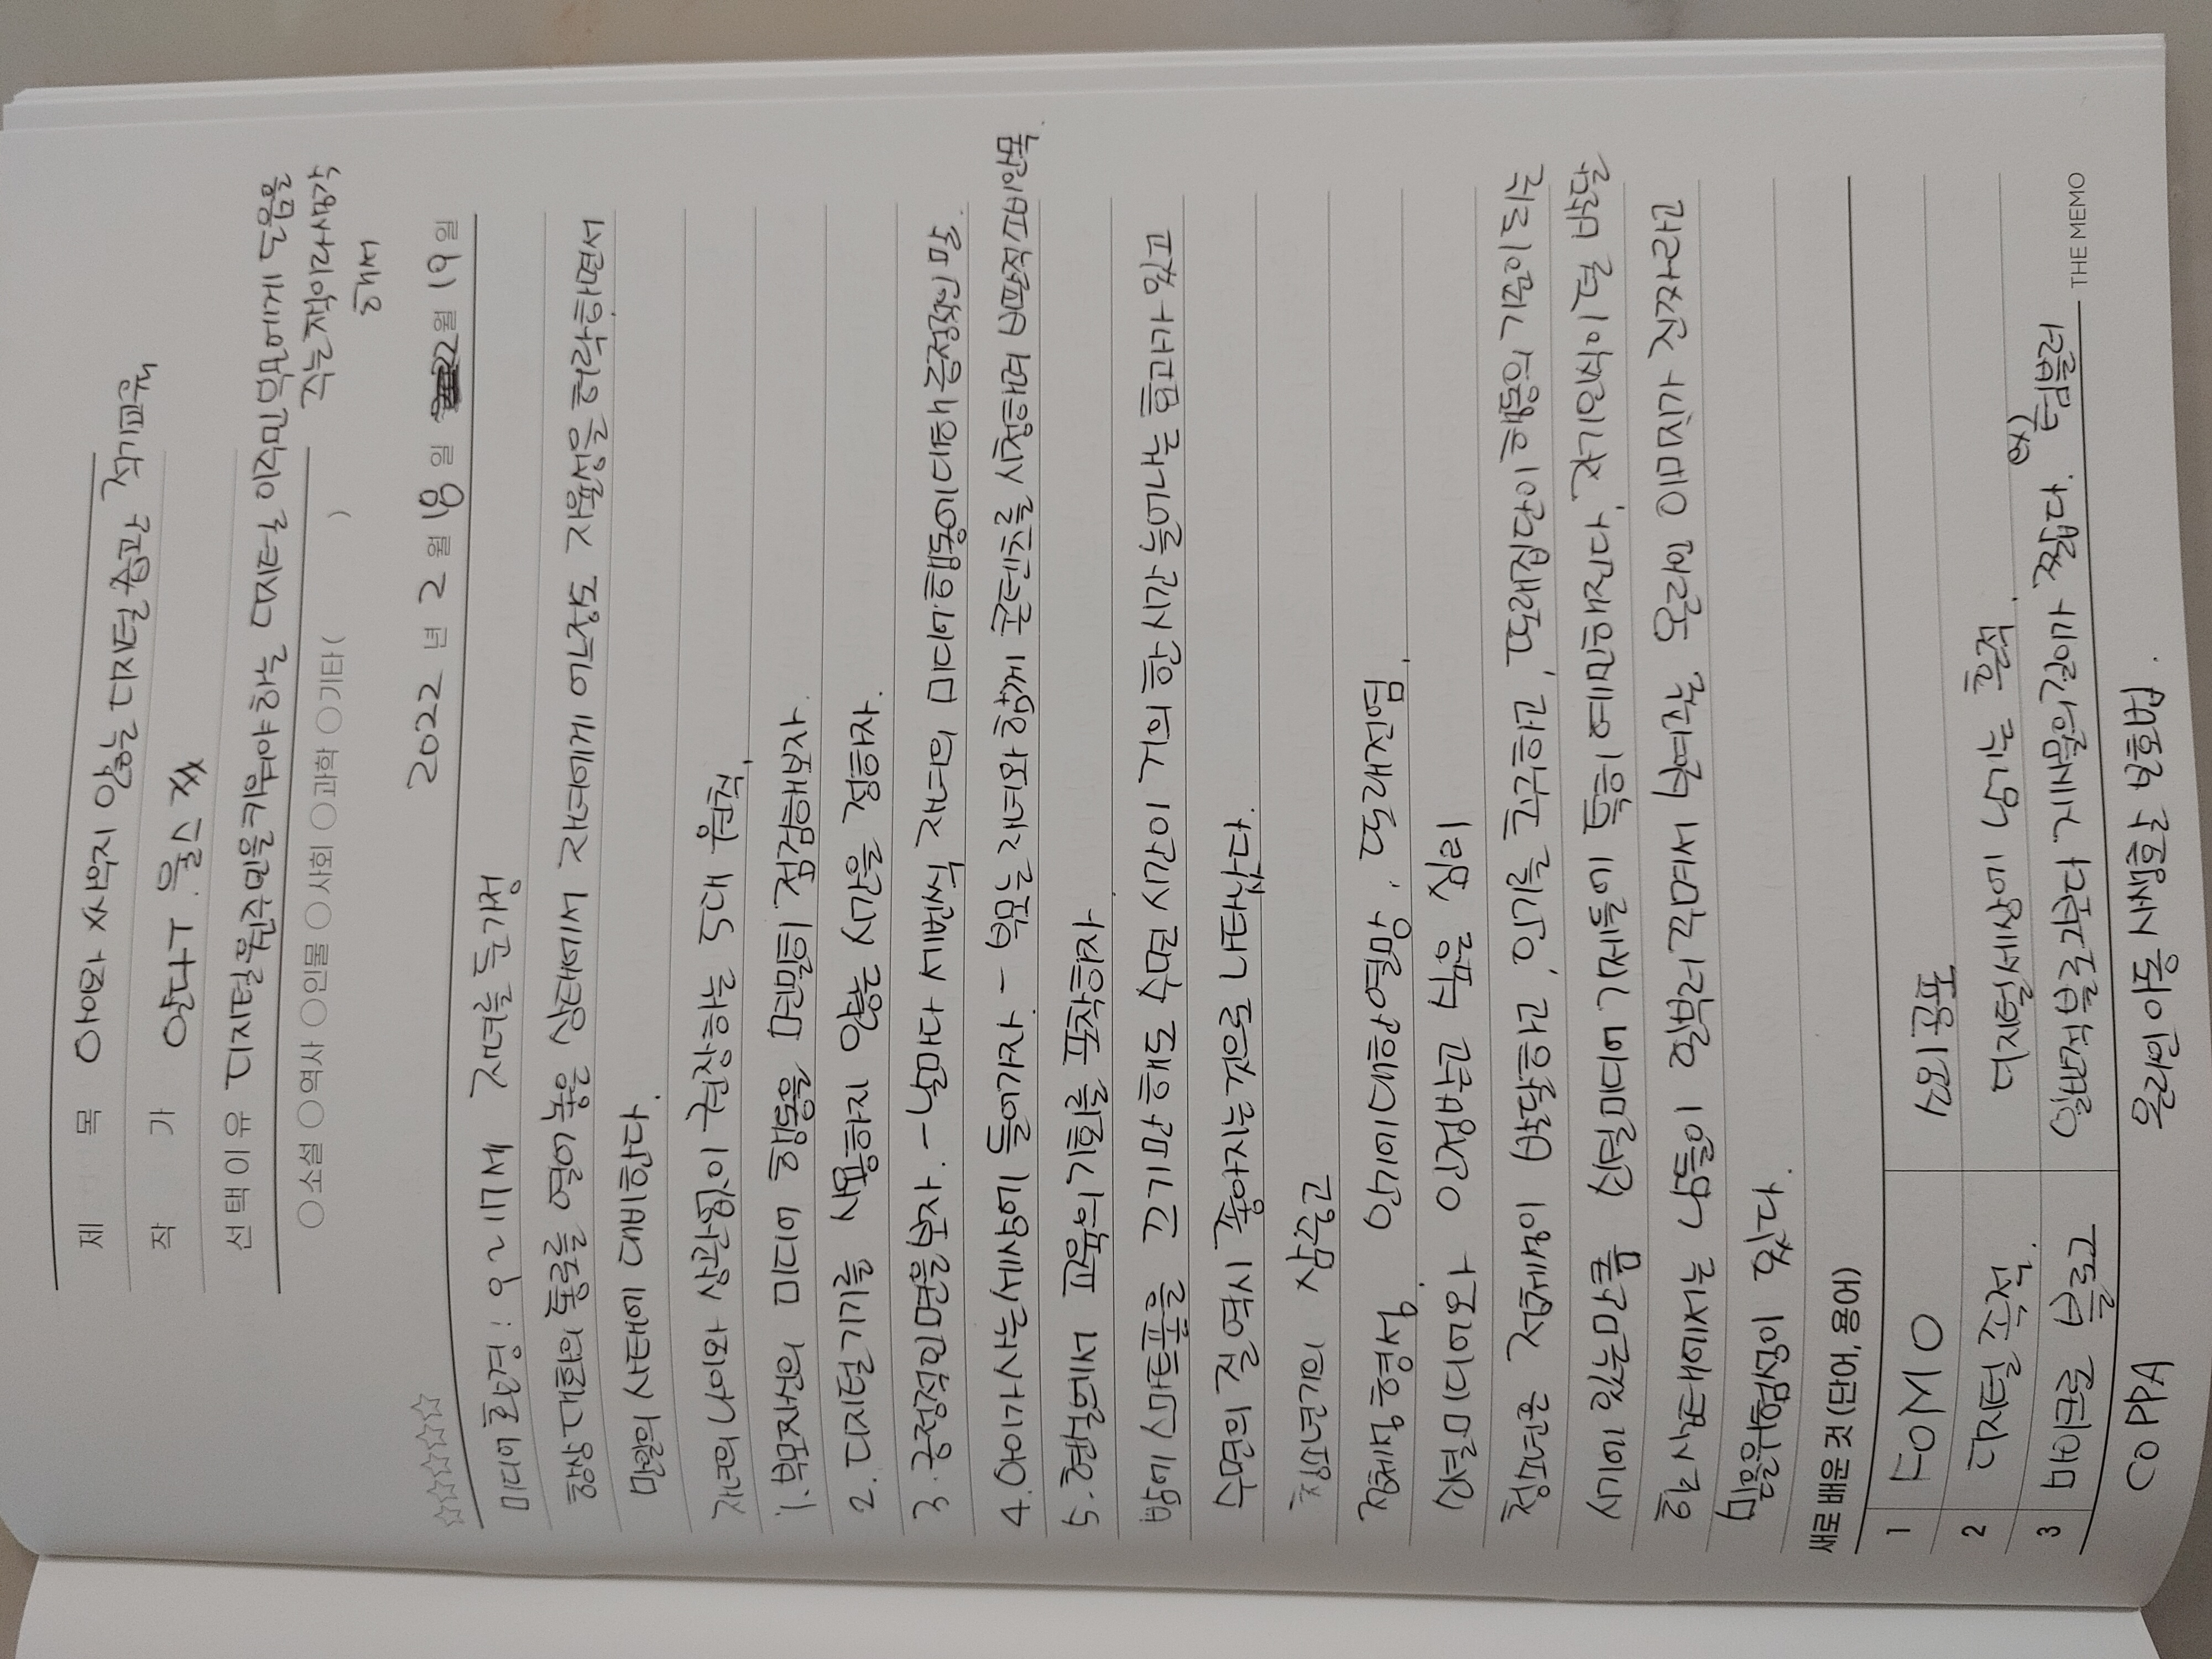 제 목 아이와 싸우지 않는 디지털 습관 적기교육
작 가 얄다 T. 울스 著
선택이유 디지털 원주민을 키워야 하는 디지털 이주민 부모에게 도움을
주는 책이라 생각
해서
○소설 ○역사 ○인물 ○사회 ○과학 ○기타( )
☆☆☆☆☆
2022 년 2 월 18 일 2 월 19 일
미디어 환경 : 9~17세 자녀를 둔 가정
항상 대화의 통로를 열어 놓은 상태에서 자녀에게 어느정도 자율성을 허락하면서
만일의 사태에 대비한다.
자녀의 나이와 상관없이 권장하는 5대 원칙,
1. 부모자신의 미디어 행동을 면밀히 점검해보자.
2. 디지털기기를 사용하지 않는 시간을 정하자.
3. 긍정적인 면을 보자. - 날마다 세번씩 자녀의 미디어 행동에 대해 긍정적인 말.
4. 아이가 사는 세상에 들어가자. - 부모는 자녀와 함께 콘텐츠를 시청하며 비판적 소비안목.
5. 현실에서 교육의 기회를 포착하자
밤에 스마트폰을 끄기만 해도 수면 시간이 거의 한 시간 늘어나는 효과가 있고
수면의 질 역시 좋아지는 것으로 나타났다.
청소년기의 삼중고
정체성 형성, 인기에 대한 열망, 또래전염,
소셜미디어와 인정받고 싶은 심리
청소년은 정체성이 발달하고, 인기를 추구하고, 또래집단이 행동의 기준이 되는
시기에 있는만큼 소셜미디어 기제들에 특히 예민해진다. 자기인식이 덜 발달
한 상태에서는 남들이 일부러 꾸며서 보여주는 온라인 이미지가 진짜라고
믿을 위험성이 있다.
새로 배운 것 (단어, 용어)
1 FOMO 소외 공포
2 디지털 족적. 디지털세상에 남기는 흔적.
3 마이크로 블로그 일반적 블로그보다 게시물의 길이가 짧다. ex) 텀블러
THE MEMO
COPPA 온라인 아동 사생활 보호법.